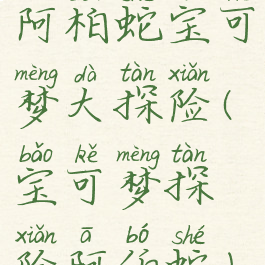 阿柏蛇宝可
mèng dà tàn xiǎn
梦大探险(
bǎo kě mèng tàn
宝可梦探
xiǎn ā bó shé
险阿伯蛇)